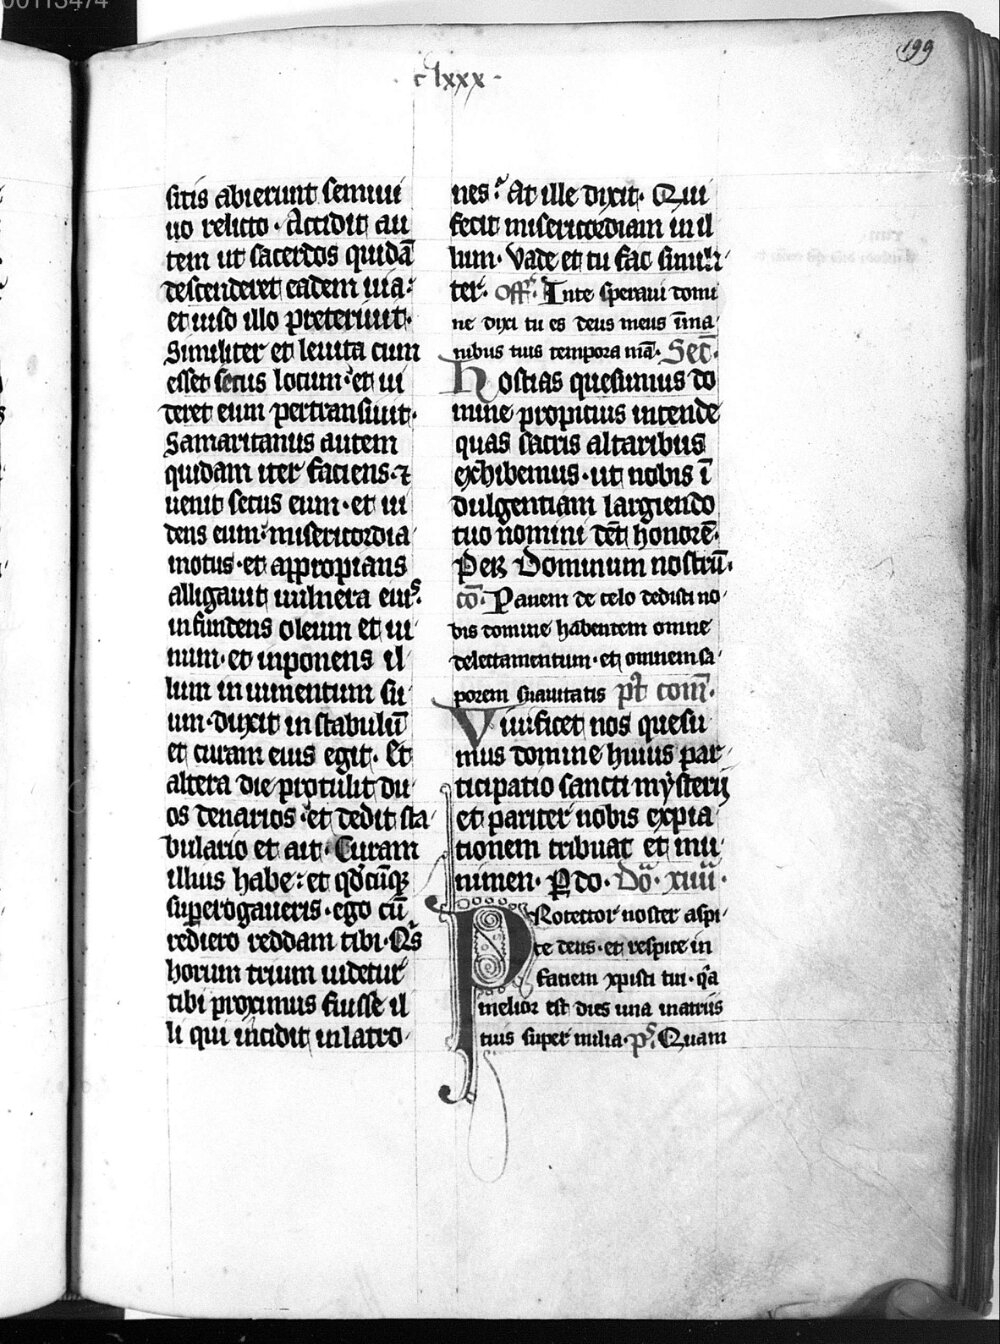 00113474
199
· clxxx ·
sitis abierunt semiui
uo relicto · Accidit au
tem ut sacerdos quidā
descenderet eadem uia:
et uiso illo preteriuit·
Similiter et leuita cum
esset secus locum · et ui
deret eum pertransiuit·
Samaritanus autem
quidam iter faciens · ⁊
uenit secus eum · et ui
dens eum · misericordia
motus · et appropians
alligauit uulnera eius·
infundens oleum et ui
num · et inponens il
lum in iumentum su
um · duxit in stabulū
et curam eius egit · Et
altera die protulit du
os denarios · et dedit sta
bulario et ait · Curam
illius habe : et qđcūqꝫ
superogaueris · ego cū
rediero reddam tibi · Qˢ
horum trium uidetur
tibi proximus fuisse il
li qui incidit in latro
nes · At ille dixit · Qui
fecit misericordiam in il
lum · Vade et tu fac simili
ter · Off· Inte speraui domi
ne dixi tu es deus meus ī ma
nibus tuis tempora mā · Sec̄·
Hostias quesumus do
mine propitius intende
quas sacris altaribus
exhibemus · ut nobis ī
dulgentiam largiendo
tuo nomini dēt honorē·
Per Dominum nostrū·
cō· Panem de celo dedisti no
bis domine habentem omne
delectamentum · et omnem sa
porem suauitatis p̄t com̄·
Viuificet nos quesu
mus domine huius par
ticipatio sancti mysterij
et pariter nobis expia
tionem tribuat et mu
nimen · P do· Dō· xiiii·
PRotector noster aspi
ce deus · et respice in
faciem xpisti tui · qa
melior est dies una in atriis
tuis super milia · pˢ· Quam